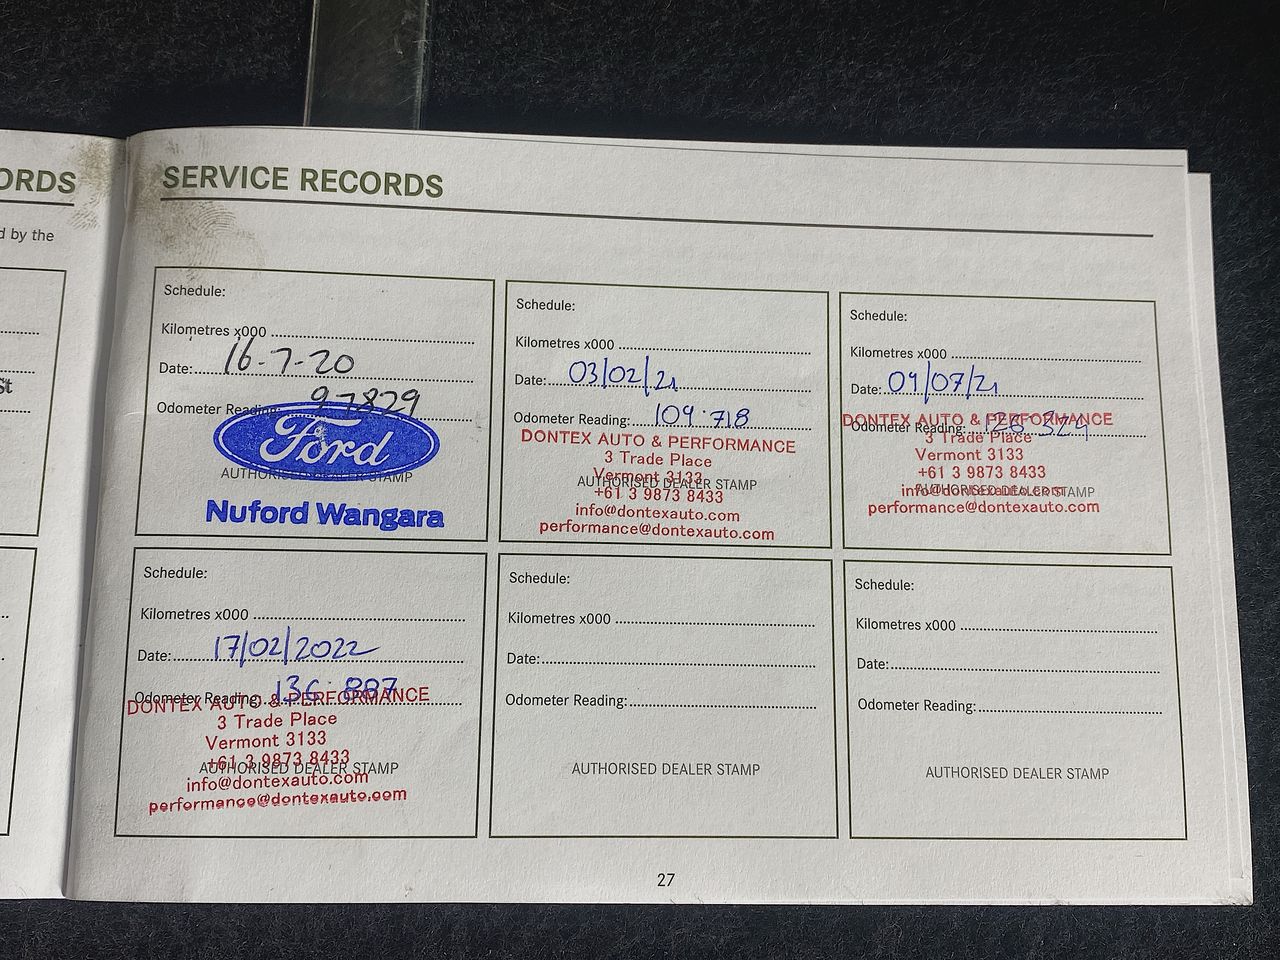 ORDS
d by the
St
SERVICE RECORDS
Schedule:
Kilometres x000
Date: 16-7-20
Odometer Reading: 97829
Ford
AUTHORISED DEALER STAMP
Nuford Wangara
Schedule:
Kilometres x000
Date: 03/02/21
Odometer Reading: 109.718
DONTEX AUTO & PERFORMANCE
3 Trade Place
Vermont 3133
AUTHORISED DEALER STAMP
+61 3 9873 8433
info@dontexauto.com
performance@dontexauto.com
Schedule:
Kilometres x000
Date: 09/07/21
DONTEX AUTO & PERFORMANCE
Odometer Reading:
3 Trade Place
Vermont 3133
+61 3 9873 8433
info@dontexauto.com
AUTHORISED DEALER STAMP
performance@dontexauto.com
Schedule:
Kilometres x000
Date: 17/02/2022
Odometer Reading: 136.887
DONTEX AUTO & PERFORMANCE
3 Trade Place
Vermont 3133
+61 3 9873 8433
AUTHORISED DEALER STAMP
info@dontexauto.com
performance@dontexauto.com
Schedule:
Kilometres x000
Date:
Odometer Reading:
AUTHORISED DEALER STAMP
Schedule:
Kilometres x000
Date:
Odometer Reading:
AUTHORISED DEALER STAMP
27